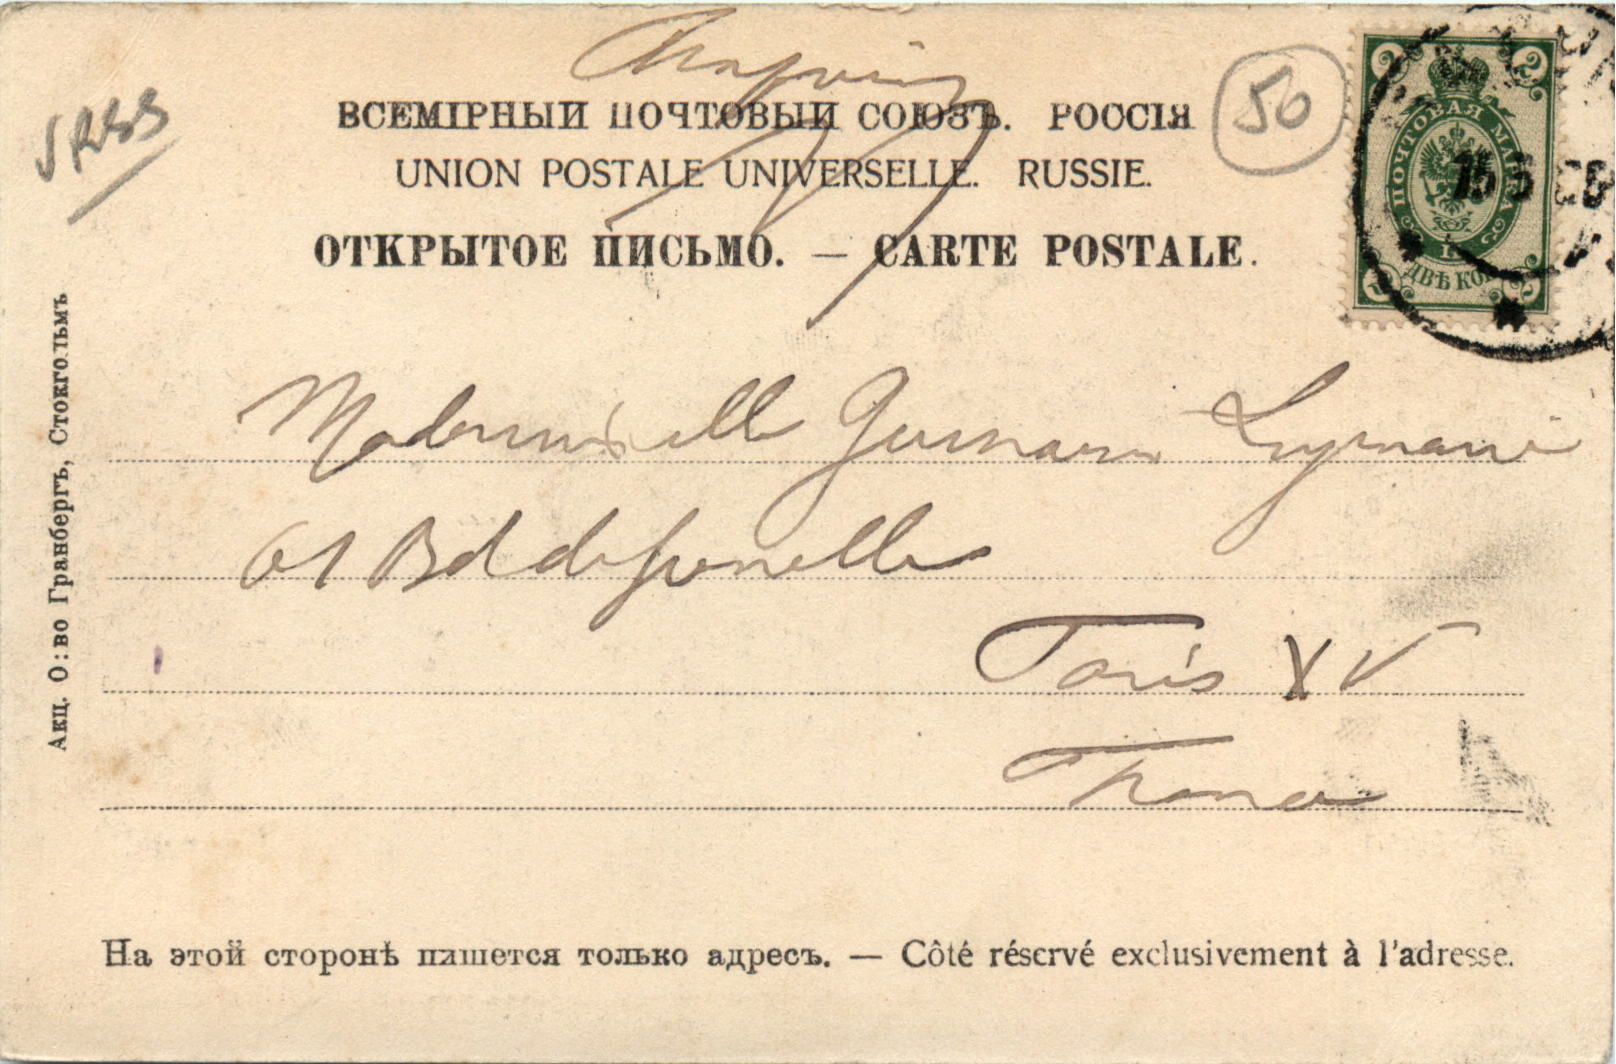 URSS
50
ВСЕМІРНЫЙ ПОЧТОВЫЙ СОЮЗЪ. РОССІЯ
UNION POSTALE UNIVERSELLE. RUSSIE.
ОТКРЫТОЕ ПИСЬМО. — CARTE POSTALE.
2 2
ПОЧТОВАЯ МАРКА
15 5
ДВѢ КОП
2 2
Акц. О:во Гранбергъ, Стокгольмъ
Mademoiselle Germaine
61 Bd de Grenelle
Paris XV
France
На этой сторонѣ пишется только адресъ. — Côté réservé exclusivement à l'adresse.